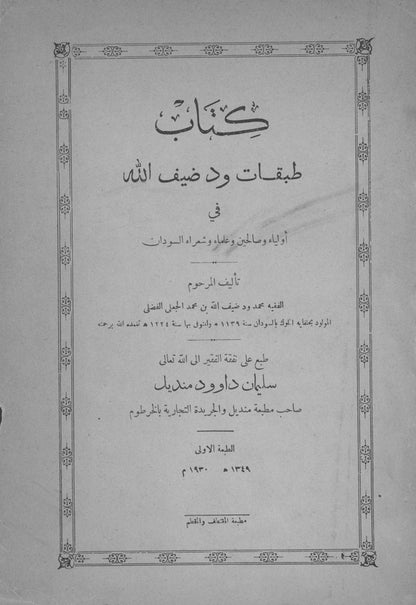 كتاب
طبقات ود ضيف الله
في
أولياء وصالحين وعلماء وشعراء السودان
تأليف المرحوم
الفقيه محمد ود ضيف الله بن محمد الجعلي الفضلي
المولود بحلفاية الملوك بالسودان سنة ١١٣٩ ه والمتوفى بها سنة ١٢٢٤ ه تغمده الله برحمته
طبع على نفقة الفقير الى الله تعالى
سليمان داوود منديل
صاحب مطبعة منديل والجريدة التجارية بالخرطوم
الطبعة الأولى
١٣٤٩ ه ١٩٣٠ م
مطبعة المقتطف والمقطم